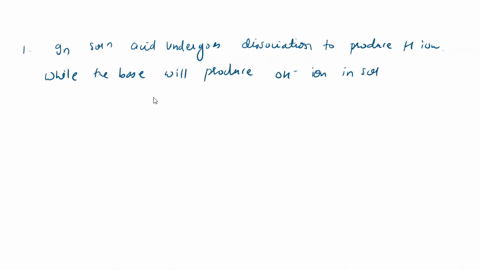 1. In soln acid undergoes dissociation to produce H ion.
while the base will produce OH- ion in sol